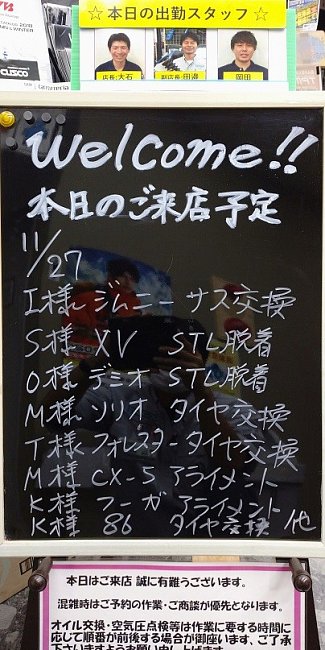 CUSCO
☆本日の出勤スタッフ☆
店長:大石
副店長:田邊
岡田
Welcome!!
本日のご来店予定
11/27
I様 ジムニー サス交換
S様 XV STL脱着
O様 デミオ STL脱着
M様 ソリオ タイヤ交換
T様 フォレスター タイヤ交換
M様 CX-5 アライメント
K様 フーガ アライメント
K様 86 タイヤ交換 他
本日はご来店 誠に有難うございます。
混雑時はご予約の作業・ご商談が優先となります。
オイル交換・空気圧点検等は作業に要する時間に
応じて順番が前後する場合が御座います、ご了承
下さいますようお願い申し上げます。